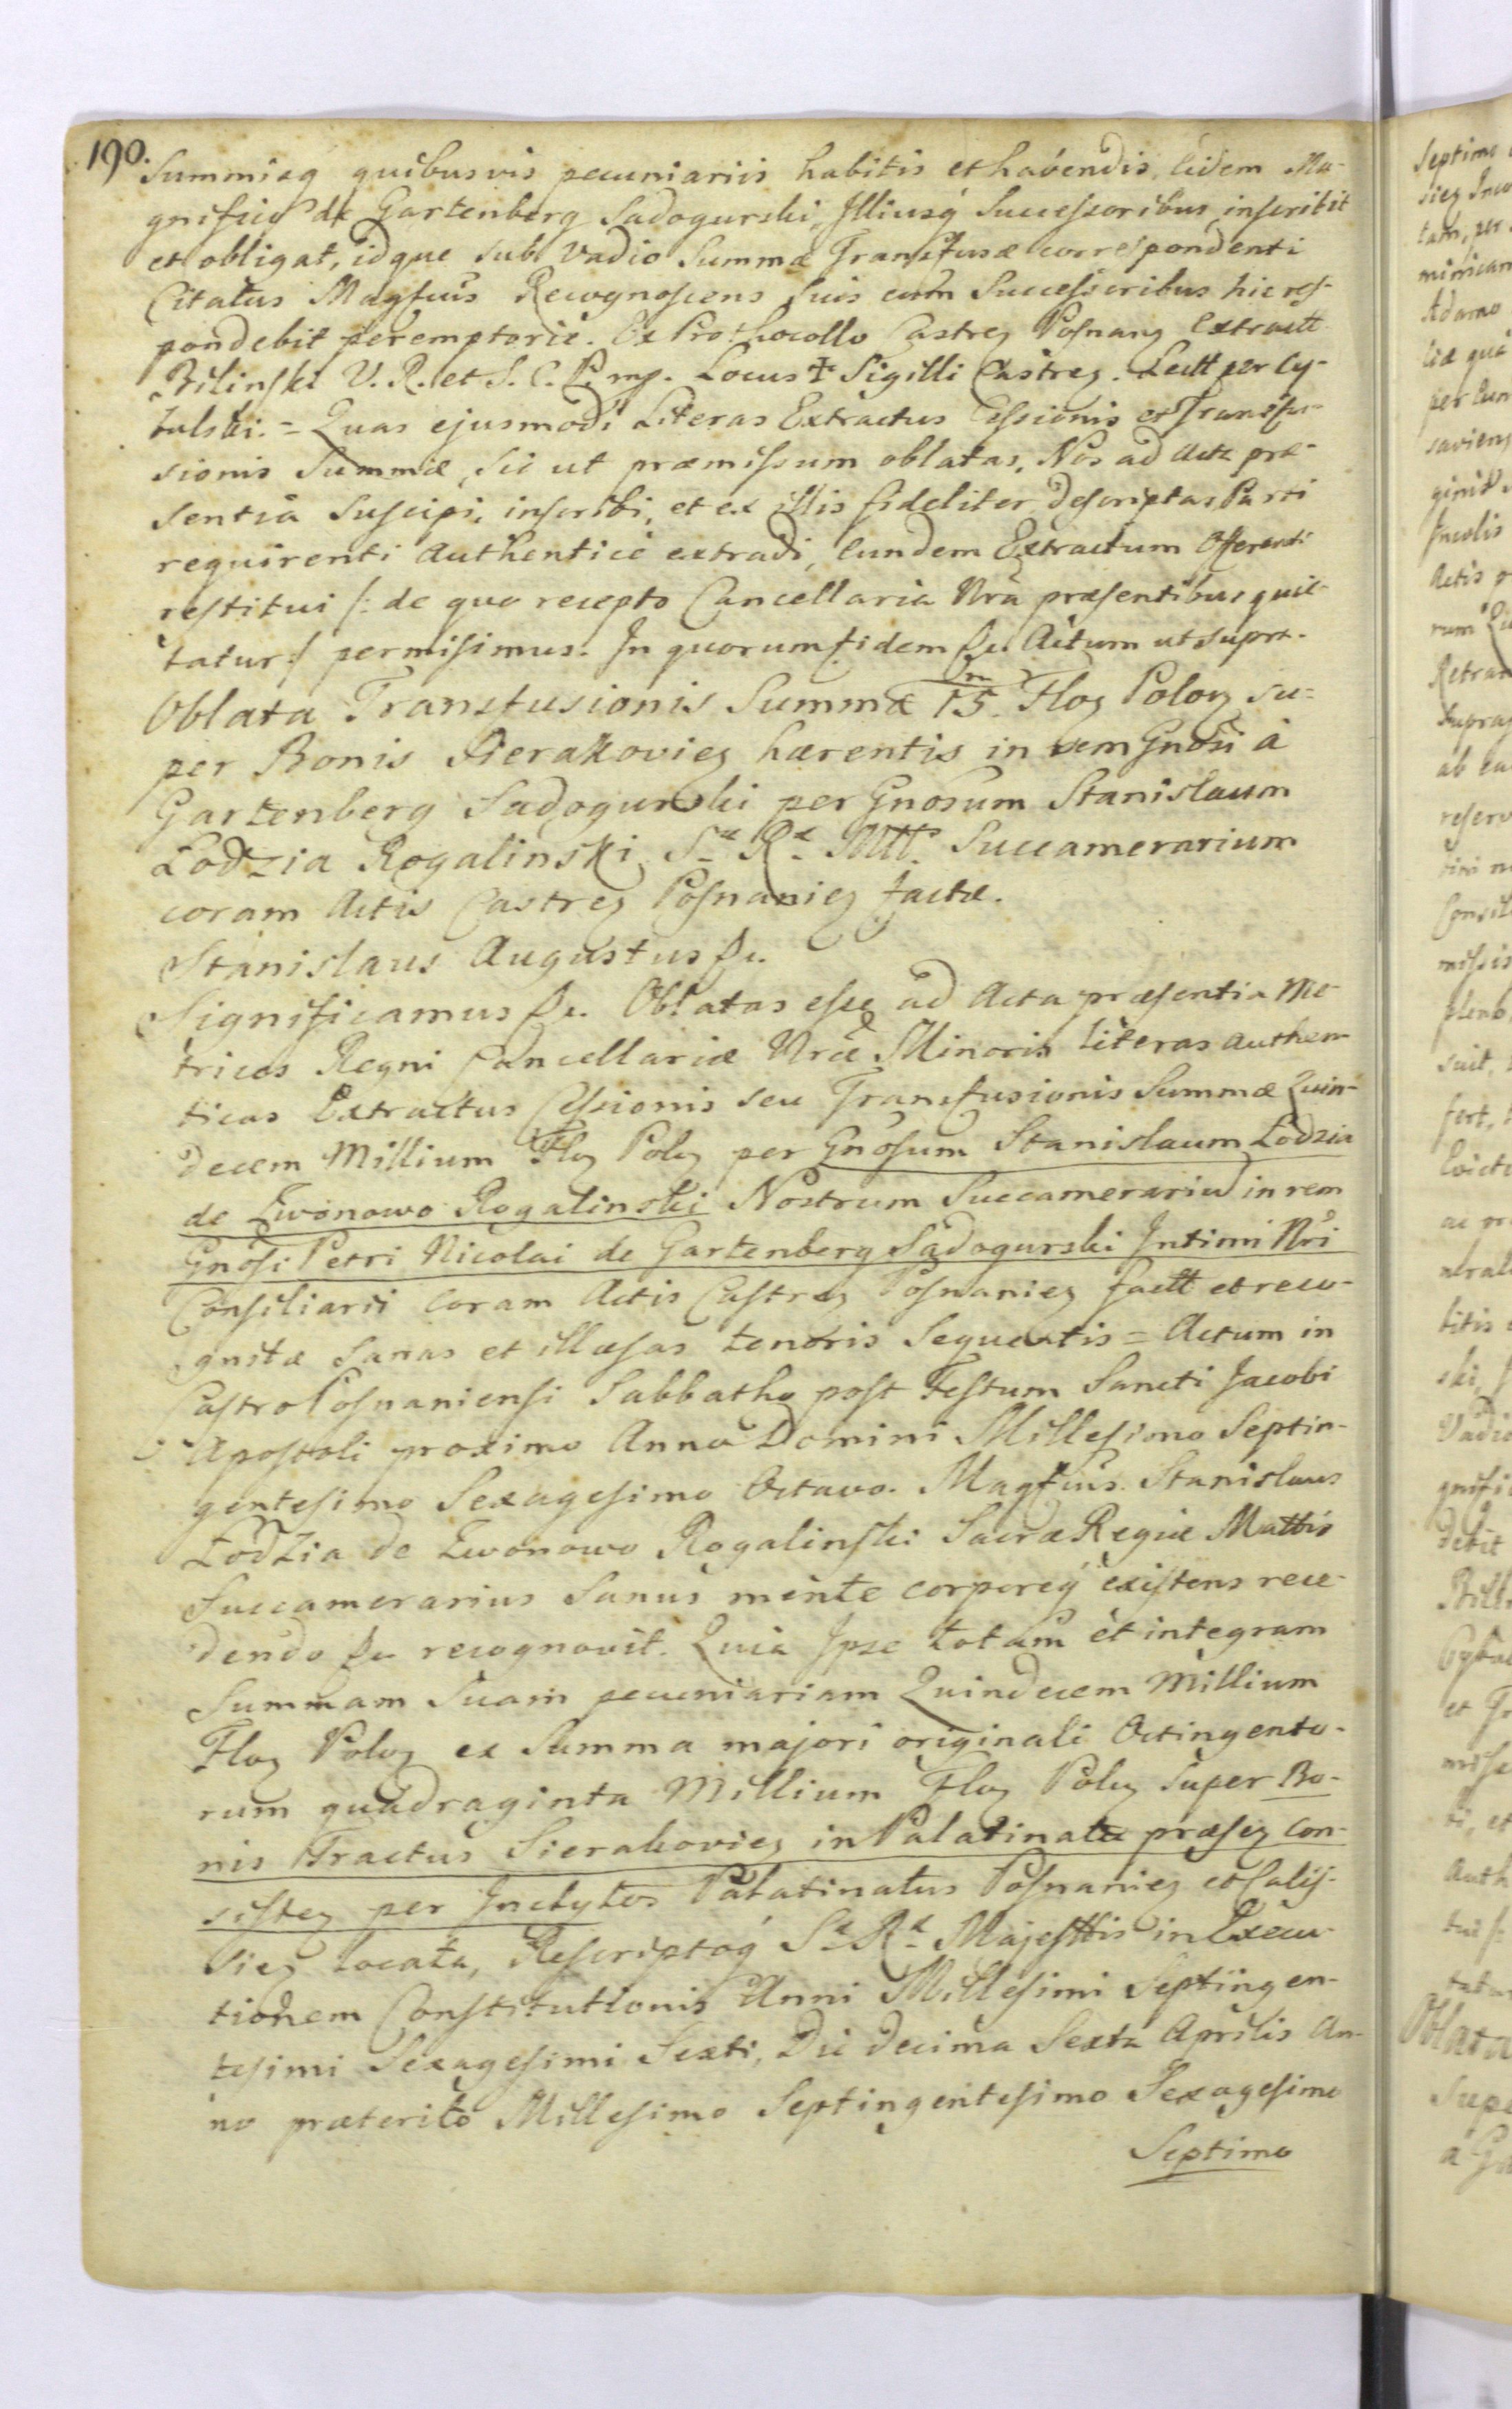 190.
Summisq quibusvis pecuniariis habitis et habendis, eidem Ma-
gnifico de Gartenberg Sadogurski, Illiusq Successoribus inscribit
et obligat, idque sub Vadio Summæ Transfusæ correspondenti
Citatus Magfcus Recognoscens Suis cum Successoribus hic res-
pondebit peremptorie. Ex Prothocollo Castren Posnan Extractt
Bilinski V. R. et S. C. P. mp. Locus ✝ Sigilli Castren. Lectt per Cy-
tulski. = Quas ejusmodi Literas Extractus Cessionis et Transfu-
sionis Summæ, sic ut præmissum oblatas, Nos ad Acta præ-
sentia Suscipi, inscribi, et ex illis fideliter descriptas Parti
requirenti Authentice extradi, eundem Extractum Offerenti
restitui /: de quo recepto Cancellaria Nra præsentibus quie-
tatur :/ permisimus. In quorum fidem &c. Actum ut supra.
Oblata Transfusionis Summæ 15 m Flor Polon su-
per Bonis Sierakovien hærentis in rem Gnosi à
Gartenberg Sadogurski per Gnosum Stanislaum
Łodzia Rogalinski Sæ Ræ Mttis Succamerarium
coram Actis Castren Posnanien factæ.
Stanislaus Augustus &c.
Significamus &c. Oblatas esse ad Acta præsentia Me-
trices Regni Cancellariæ Nræ Minoris Literas authen-
ticas Extractus Cessionis seu Transfusionis Summæ Quin-
decem Millium Flor Polon per Gnosum Stanislaum Łodzia
de Zwonowo Rogalinski Nostrum Succamerariu in rem
Gnosi Petri Nicolai de Gartenberg Sadogurski Intimi Nri
Consiliarii coram Actis Castren Posnanien factt et reco-
gnitæ Sanas et illæsas tenoris Sequentis = Actum in
Castro Posnaniensi Sabbatho post Festum Sancti Jacobi
Apostoli proximo Anno Domini Millesimo Septin-
gentesimo Sexagesimo Octavo. Magfcus Stanislaus
Łodzia de Zwonowo Rogalinski Sacræ Regiæ Mattis
Succamerarius Sanus mente corporeq existens rece-
dendo &c recognovit. Quia Ipse totam et integram
Summam Suam pecuniariam Quindecem Millium
Flor Polon ex Summa majori originali Octingento-
rum quadraginta Millium Flor Polon Super Bo-
nis Tractus Sierakovien in Palatinatu præsen con-
sisten per Inclytos Palatinatus Posnanien et Calis-
sien locata, Rescriptoq Sæ Ræ Majesttis in Execu-
tionem Constitutionis Anni Millesimi Septingen-
tesimi Sexagesimi Sexti, Die decima Sexta Aprilis An-
no præterito Millesimo Septingentesimo Sexagesimo
Septimo